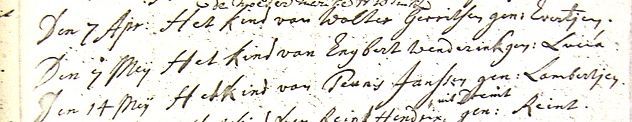 de moeder
Den 7 Apr. Het kind van Wolter Gerritsen gen: Evertjen.
Den 7 Meij Het kind van Engbert Wenderink gen: Lucia.
Den 14 Meij Het kind van Teunis Janssen gen: Lambertjen.
uit Dremt
kind van Reint Hendrix gen: Reint.